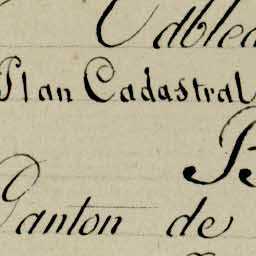 Tablea
Plan Cadastral
Canton de